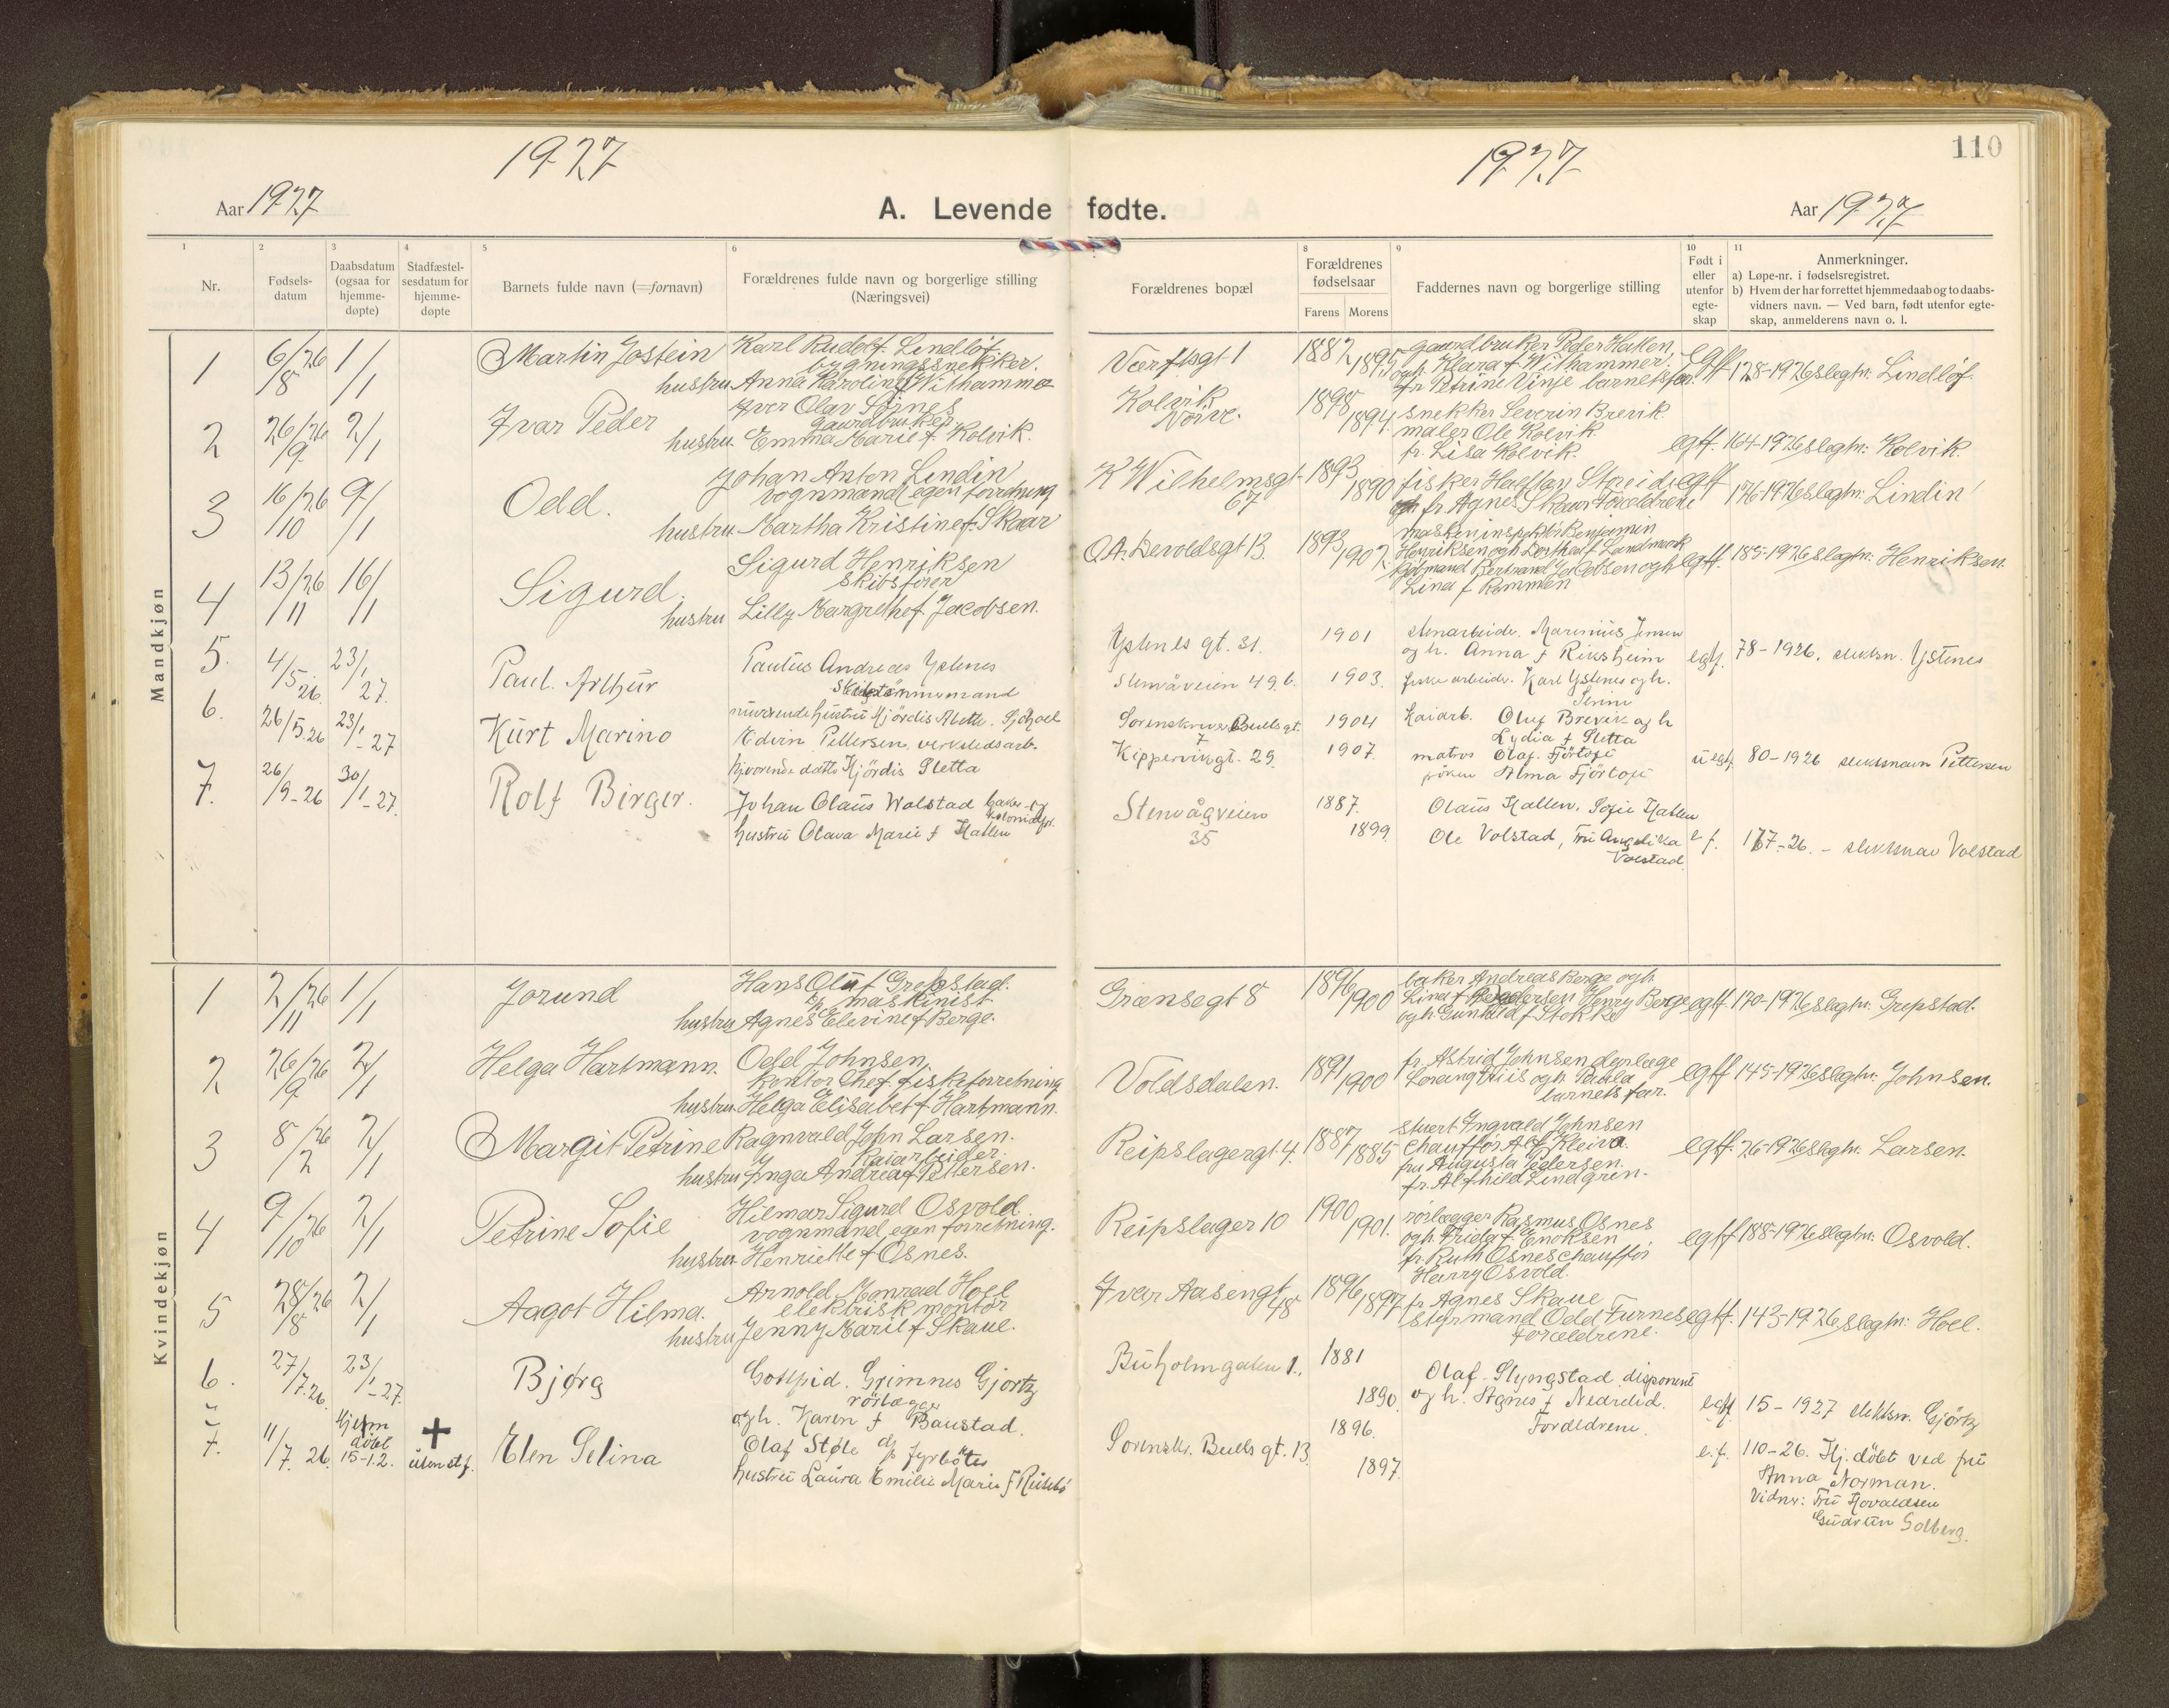 1927
1927
110
Aar 1927
A. Levende fødte.
Aar 1927
1
2
3
4
5
6
8
9
10
11
Nr.
Fødsels-datum
Daabsdatum (ogsaa for hjemme-døpte)
Stadfæstel-sesdatum for hjemme-døpte
Barnets fulde navn (=fornavn)
Forældrenes fulde navn og borgerlige stilling (Næringsvei)
Forældrenes bopæl
Forældrenes fødselsaar
Farens Morens
Faddernes navn og borgerlige stilling
Født i eller utenfor egte-skap
Anmerkninger.
a) Løpe-nr. i fødselsregistret.
b) Hvem der har forrettet hjemmedaab og to daabs-
vidners navn. — Ved barn, født utenfor egte-
skap, anmelderens navn o. l.
Mandkjøn
1 6/8 26 1/1 Martin Jostein
Karl Rudolf Lindløf
bygningssnekker.
hustru Anna Karoline f Wilhammer
Værftsgt 1
1882 1895
gaardbruker Peder Hatlen
ogh. Klara f Wilhammer,
fr. Petrine Vinje barnets far.
egtf 128-1926 slegtn: Lindløf
2 26/9 26 2/1 Ivar Peder
Iver Olav Sørnes
gaardbruker
hustru Emma Marie f Kolvik.
Kolvik
Nørve.
1898 1894
snekker Severin Brevik
maler Ole Kolvik
fr. Lisa Kolvik.
egtf. 164-1926 slegtn: Kolvik.
3 16/10 26 9/1 Odd.
Johan Anton Lindin
vognmand (egen forretning
hustru Martha Kristine f. Skaar
K Wilhelmsgt 67
1893 1890
fisker Halftan Storeide
fr. Agnes Skaar Forældrene
egtf 176-1926 slegtn: Lindin
4 13/11 26 16/1 Sigurd.
Sigurd Henriksen
skibsfører
hustru Lilly Margrethe f. Jacobsen.
O.A. Devoldsgt 13.
1893 1902
maskininspektør Benjamin
Henriksen ogh Dorthea f Landmark
Bertrand Jacobsen ogh
Lina f Remmen
egtf. 185-1926 slegtn: Henriksen.
5. 4/5 26 23/1 27. Paul Arthur
Paulus Andreas Ystenes
Skibstømmermand
nuværende hustru Hjørdis Alette
Ystenes gt. 31.
1901
stenarbeider. Marinius Jensen
og h. Anna f Riksheim
egtf. 78-1926. slektsn. Ystenes
Stenvåveien 49 b.
1903.
Karl Ystenes og h.
6. 26/5. 26 23/1 - 27 Kurt Marino
Edvin Pettersen. verkstedsarb.
Hjørdis Sletta
Sorenskriver Bulls gt. 7
1904
Kaiarb. Oluf Brevik og h
Lydia f Sletta
Kippervikgt. 29.
1907.
matros Olaf Fjørtoft
frøken Alma Fjørtoft
u egt. 80-1926 slektsnavn Pettersen
7. 26/9-26 30/1-27. Rolf Birger.
Johan Olaus Wolstad baker og
kolonialfor.
hustru Olava Marie f Hatlen
Stenvågveien
35
1887. 1899
Olaus Hatlen, Sofie Hatlen
Ole Volstad, Fru Angelika
Volstad.
e f. 167-26. - slektsnav Volstad
Kvindekjøn
1 2/11 26 1/1 Jorund
Hans Oluf Grepstad.
maskinist
hustru Agnes Elevine f Berge.
Grænsegt 8
1896 1900
baker Andreas Berge ogh.
Lina f Pedersen Henry Berge
ogh. Gunhild f Stokke
egtf. 170-1926 slegtn: Grepstad.
2 26/9 26 2/1 Helga Hartmann.
Odd Johnsen,
kontorchef. fiskeforretning
hustru Helga Elisabet f Hartmann.
Voldsdalen.
1891 1900
fr. Astrid Johnsen dyrlæge
Lorang Friis ogh. Paula
barnets far.
egtf 145-1926 slegtn: Johnsen.
3 8/2 26 2/1 Margit Petrine
Ragnvald John Larsen.
Kaiarbeider.
hustru Inga Andrea f Pettersen.
Reipslagergt. 4.
1887 1885
stuert Ingvald Johnsen
chauffør Alf Kleiva.
fru Augusta Pedersen.
fr. Alfhild Lindgren.
egtf. 26-1926 slegtn: Larsen.
4 9/10 26 2/1 Petrine Sofie
Hilmar Sigurd Osvold.
vognmand, egen forretning.
hustru Henriette f Osnes.
Reipslager 10
1900 1901.
rørlægger Rasmus Osnes
ogh. Frida f Enoksen
fr. Ruth Osnes chauffør
Harry Osvold.
egtf 188-1926 slegtn: Osvold.
5 28/8 26 2/1 Aagot Hilma.
Arnold Monrad Hoel
elektrisk montør
hustru Jenny Marie f Skaue.
Ivar Aasengt 48
1896 1897
fr. Agnes Skaue
styrmand Odd Furnes
forældrene.
egtf. 143-1926 slegtn: Hoel.
6. 27/7 26. 23/1-27. Bjørg
Gotfrid. Grimnes Gjørtz
rørlægger
og h. Karen f Baustad.
Buholmgaten 1.
1881 1890
Olaf Slyngstad disponent
og h. Agnes f Nedrelid.
Foreldrene.
egtf 15-1927 slektsn. Gjørtz
7. 11/7. 26. Hjem døbt 15-12. + uten stf. Elen Selina
Olaf Støle fyrbøter
hustru Laura Emilie Marie f
Sorenskr. Bulls gt. 13.
1896. 1897.
e.f. 110-26. Hj. døbt ved fru
Anna Norman.
Vidner: Fru Hovaldsen
Gudrun Solberg.